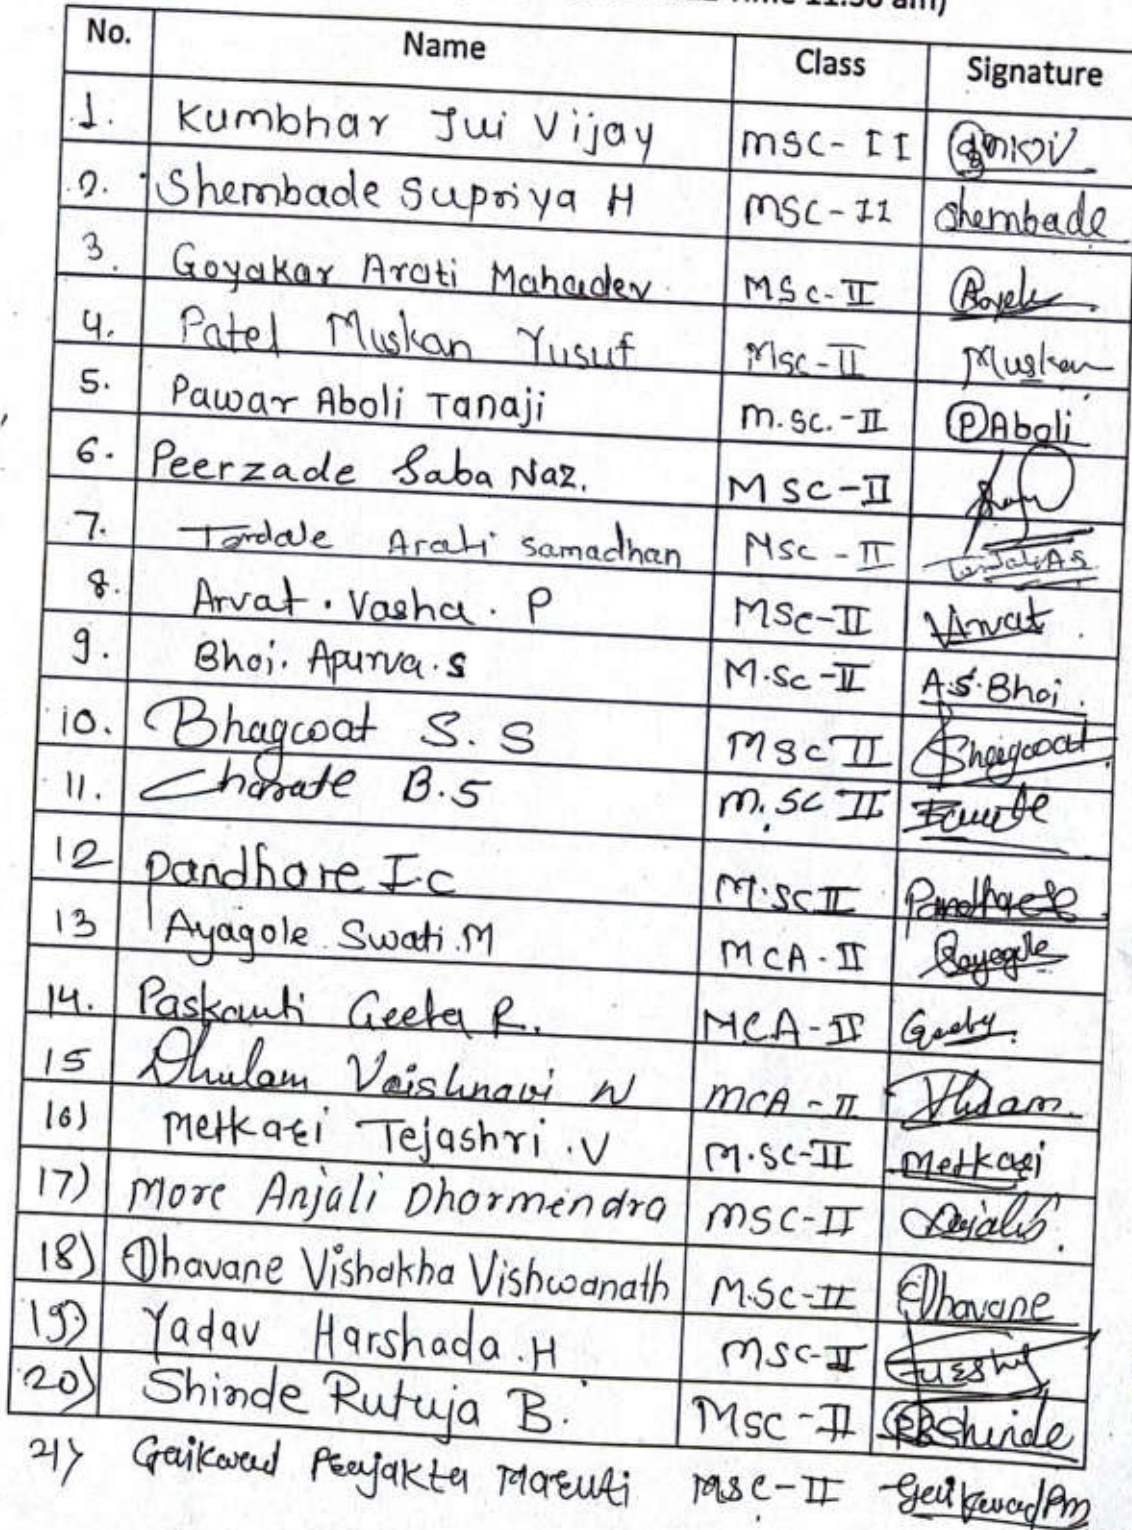 Time 11.30 am)
No. Name Class Signature
1. Kumbhar Jui Vijay MSC-II
2. Shembade Supriya H MSC-II Shembade
3. Goyakar Arati Mahadev. MSc-II
4. Patel Muskan Yusuf MSC-II Muskan
5. Pawar Aboli Tanaji M.SC.-II P Aboli
6. Peerzade Saba Naz. MSC-II
7. Tordale Arati Samadhan MSC-II
8. Arvat. Vasha. P MSc-II Arvat.
9. Bhoi. Apurva.s M.Sc-II A.S.Bhoi.
10. Bhagwat S.S MSC II Bhagwat
11. Charate B.S M.SC II
12 Pandhare I.C M.SC II Pandhare
13 Ayagole Swati.M MCA-II
14. Paskanti Geeta R. MCA-II
15 Dhulam Vaishnavi N MCA-II
16) Metkari Tejashri.V M.SC-II Metkari
17) More Anjali Dharmendra MSC-II
18) Dhavane Vishakha Vishwanath M.SC-II Dhavane
19) Yadav Harshada.H MSC-II
20) Shinde Rutuja B. MSC-II RBShinde
21) Gaikwad Prajakta Maruti MSC-II Gaikwad PM